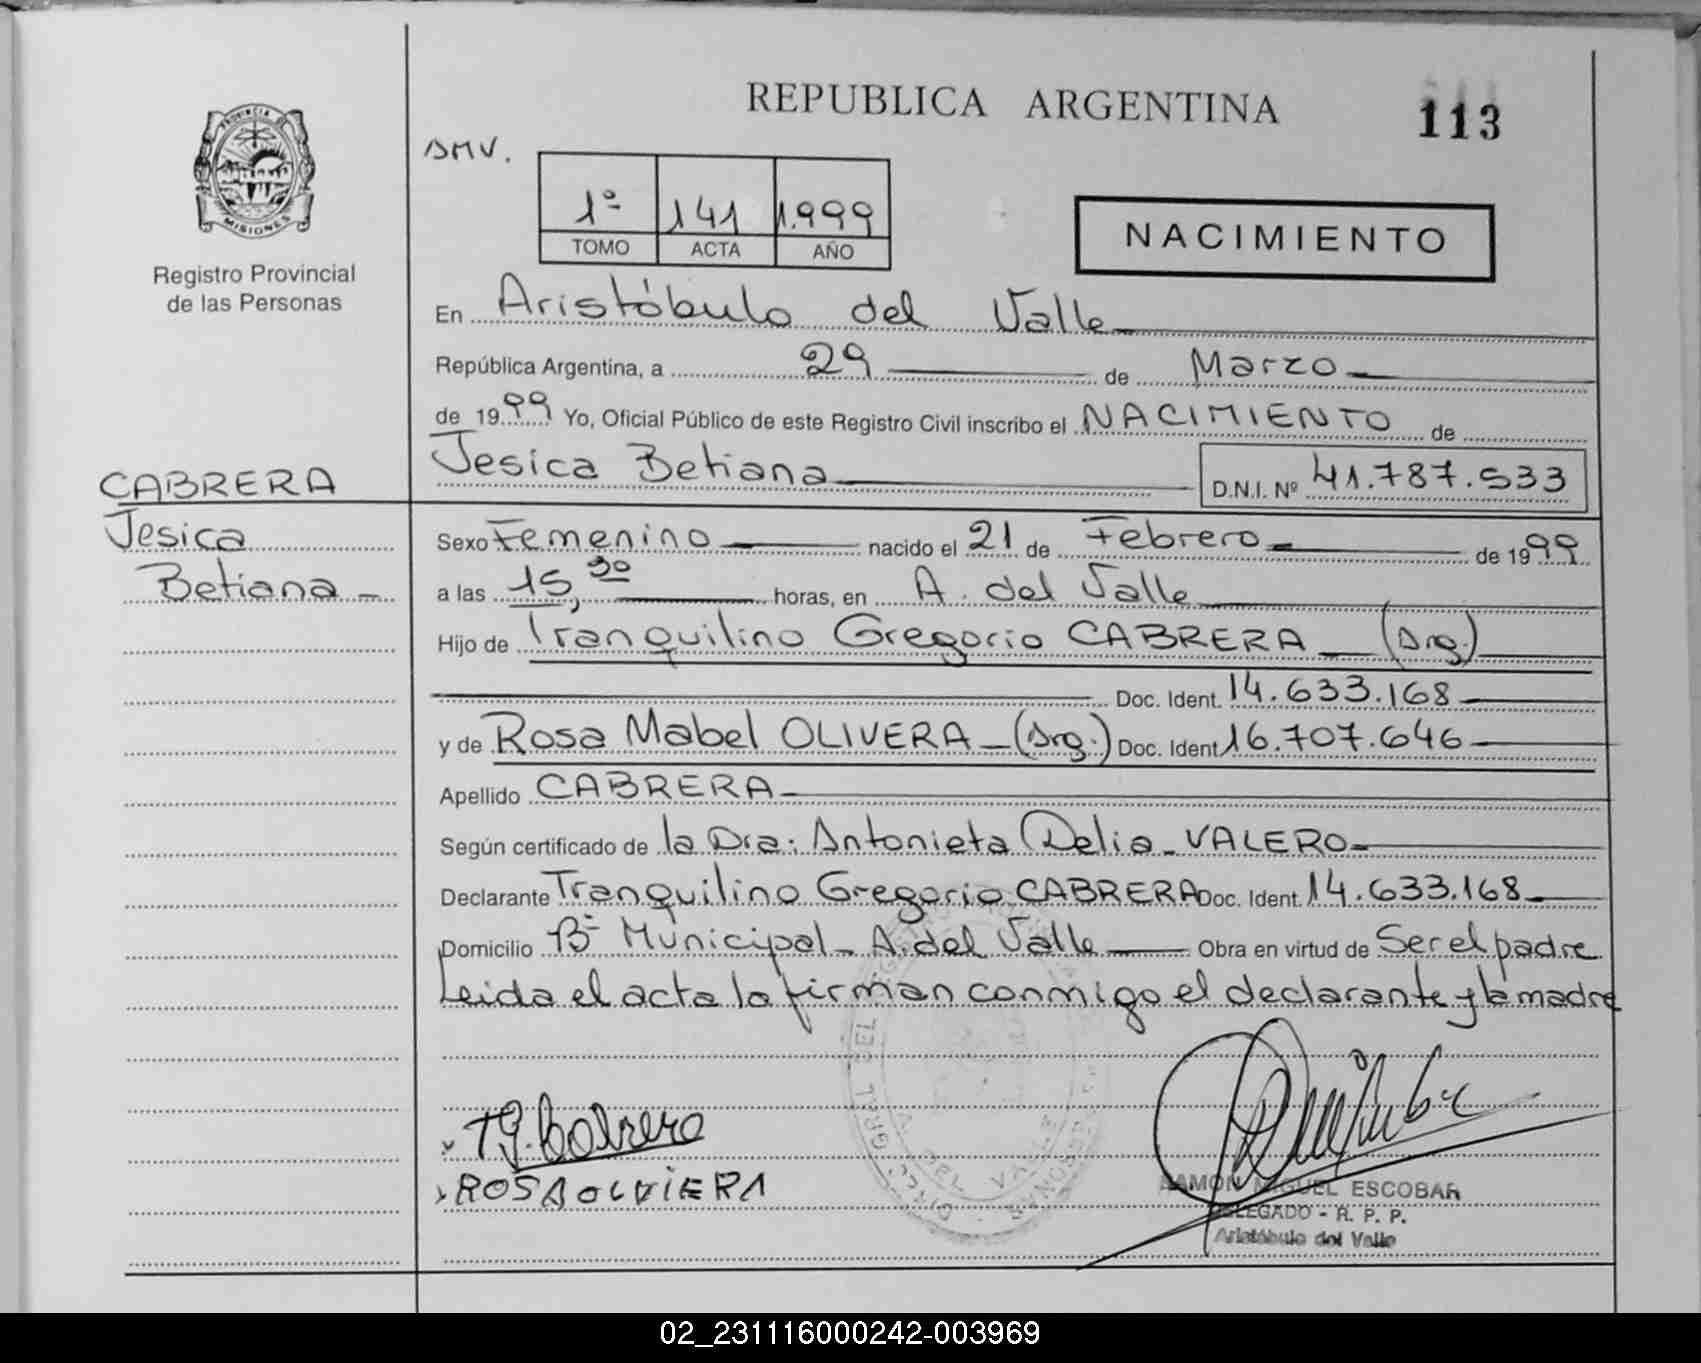 REPUBLICA ARGENTINA
113
PROVINCIA DE
MISIONES
Registro Provincial
de las Personas
DMV.
1º 141 1.999
TOMO ACTA AÑO
NACIMIENTO
En Aristóbulo del Valle
República Argentina, a 29 de Marzo
de 1999 Yo, Oficial Público de este Registro Civil inscribo el NACIMIENTO de
Jesica Betiana D.N.I. Nº 41.787.533
CABRERA
Jesica
Betiana
Sexo Femenino nacido el 21 de Febrero de 1999
a las 15,30 horas, en A. del Valle
Hijo de Tranquilino Gregorio CABRERA (Arg.)
Doc. Ident. 14.633.168
y de Rosa Mabel OLIVERA (Arg.) Doc. Ident 16.707.646
Apellido CABRERA
Según certificado de la Dra. Antonieta Delia VALERO
Declarante Tranquilino Gregorio CABRERA Doc. Ident. 14.633.168
Domicilio Bº Municipal A. del Valle Obra en virtud de Ser el padre
Leida el acta la firman conmigo el declarante y la madre
T.G. Cabrera
ROSA OLIVIERA
RAMON MIGUEL ESCOBAR
DELEGADO - R. P. P.
Aristóbulo del Valle
02_231116000242-003969